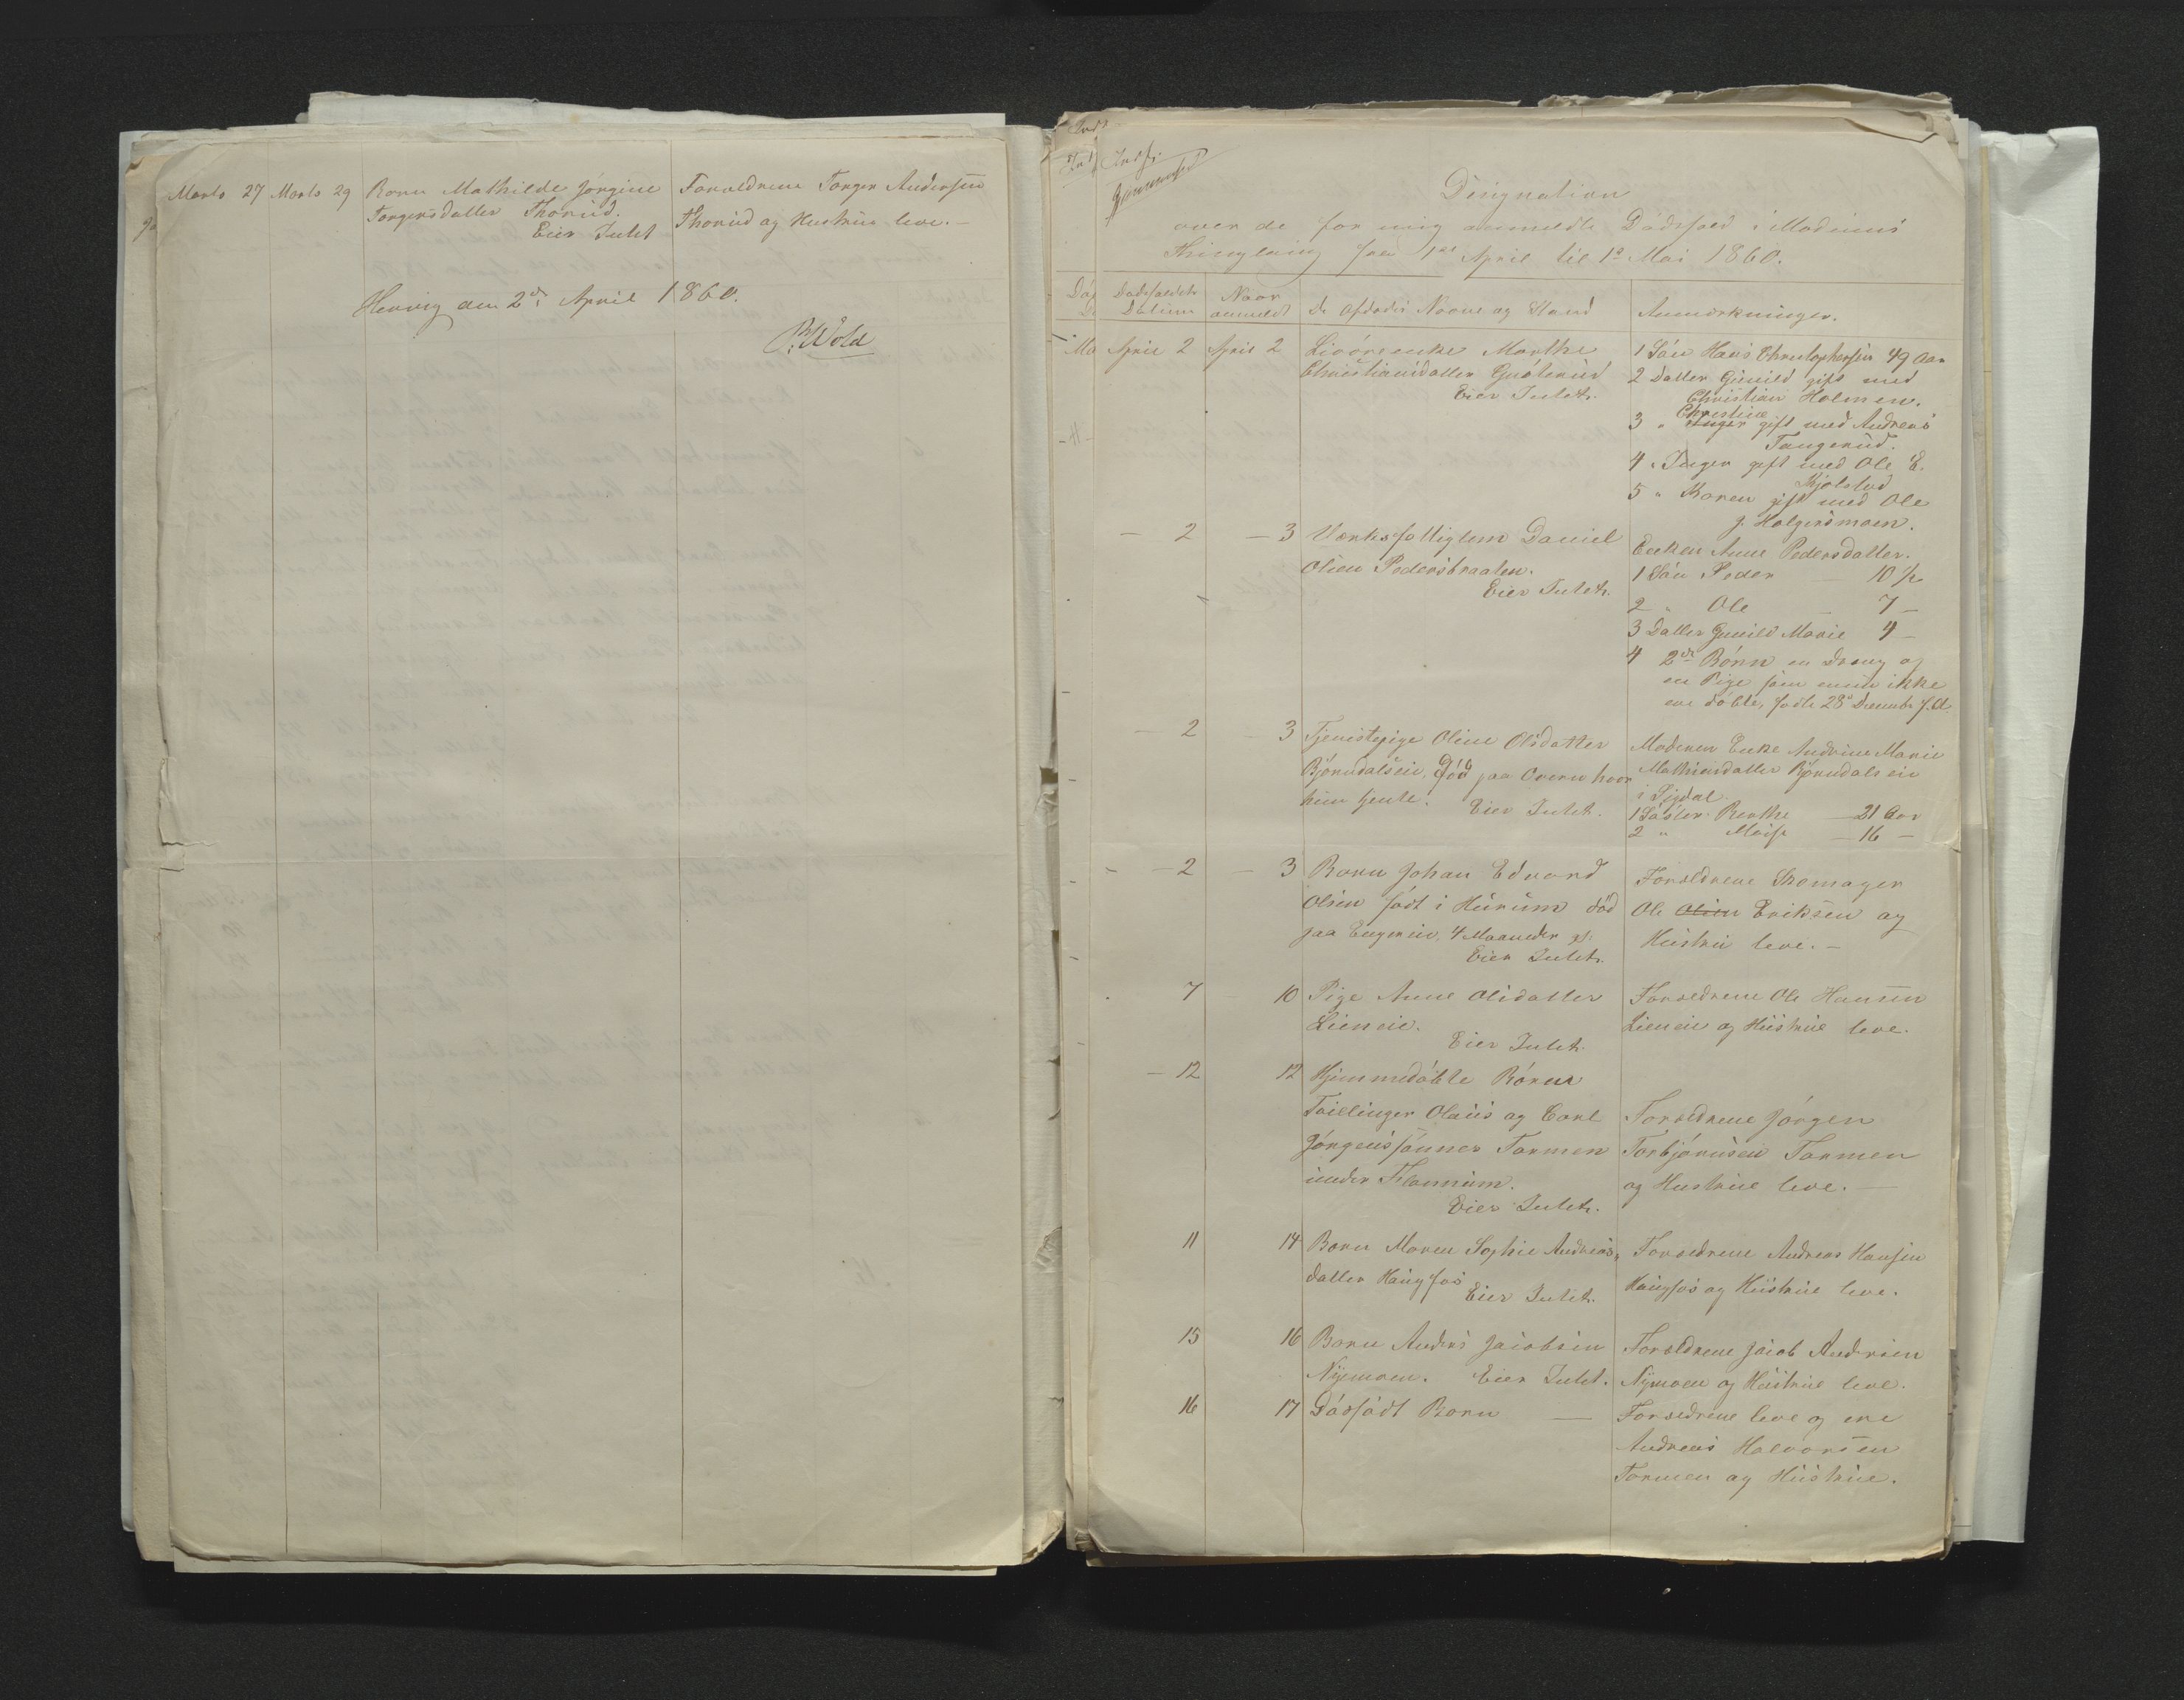 Marts 27 Marts 29 Barn Mathilde Jørgine
Torgersdatter Thorud.
Eier Intet
Forældrene Torger Andersen
Thorud og Hustrue leve. –
Herwig den 2de April 1860.
P. Wold
Designation
over de for mig anmeldte Dødsfald i Modums
Thinglaug fra 1ste April til 1ste Mai 1860.
Dødsfaldets Datum
Naar anmeldt
De Afdødes Navne og Stand
Anmærkninger.
April 2 April 2 Livørsenke Marthe
Christiansdatter
Eier Intet.
1 Søn Hans Christophersen 49 Aar
2 Datter Gunild gift med
Christian Holmen.
3 " Christine gift med Andreas
Tangerud.
4 " Inger gift med Ole E.
Kjølstad
5 " Karen gift med Ole
J. Holgersmoen.
– 2 – 3 Værksfattiglem Daniel
Olsen Pedersbraaten.
Eier Intet.
Enken Anne Pedersdatter.
1 Søn Peder – 10 ½
2 " Ole – 7 –
3 Datter Gunild Marie 4 –
4 2de Børn en Dreng og
en Pige som endnu ikke
ere døbte, fødte 28de Decembr f.A.
– 2 – 3 Tjenistepige Oline Olsdatter
Bjørndalseie, død paa Overn hvor
hun tjente. Eier Intet.
Moderen Enke Andrine Marie
Mathiasdatter Bjørndalseie
i Sigdal.
1 Søster Berthe – 21 Aar
2 " Maise – 16 –
– 2 – 3 Barn Johan Edvard
Olsen født i Hurum død
paa Engereie, 4 Maaneder gl.
Eier Intet.
Forældrene Skomager
Ole Olsen Eriksen og
Hustru leve. –
7 10 Pige Anne Olsdatter
Lieneie.
Eier Intet.
Forældrene Ole Hansen
Lieneie og Hustrue leve.
– 12 12 Hjemmedøbte Børn
Tvillinger Olaus og Carl
Jørgenssønner Tormen
under Flannum.
Eier Intet.
Forældrene Jørgen
Torbjørnsen Tormen
og Hustrue leve. –
11 14 Barn Maren Sophie Andreas-
datter Haugfos
Eier Intet.
Forældrene Andreas Hansen
Haugfos og Hustrue leve.
15 16 Barn Anders Jacobsen
Nymoen. Eier Intet.
Forældrene Jacob Andersen
Nymoen og Hustrue leve.
16 17 Dødfødt Barn –
Forældrene leve og ere
Andreas Halvorsen
Tormen og Hustrue.